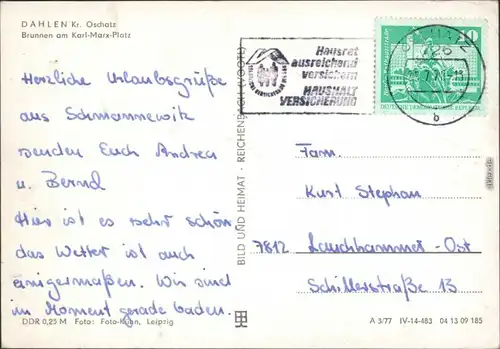 DAHLEN Kr. Oschatz
Brunnen am Karl-Marx-Platz
Herzliche Urlaubsgrüße
aus Schmannewitz
senden Euch Andrea
u. Bernd
Hier ist es sehr schön
das Wetter ist auch
einigermaßen. Wir sind
im Moment gerade baden.
DDR 0,25 M Foto: Foto-Kühn, Leipzig
BILD UND HEIMAT · REICHENBACH (VOGTL)
Hausrat
ausreichend
versichern
HAUSHALT
VERSICHERUNG
10
OSCHATZ
726
b
Fam.
Kurt Stephan
7812 Lauchhammer-Ost
Schillerstraße 13
A 3/77 IV-14-483 04 13 09 185